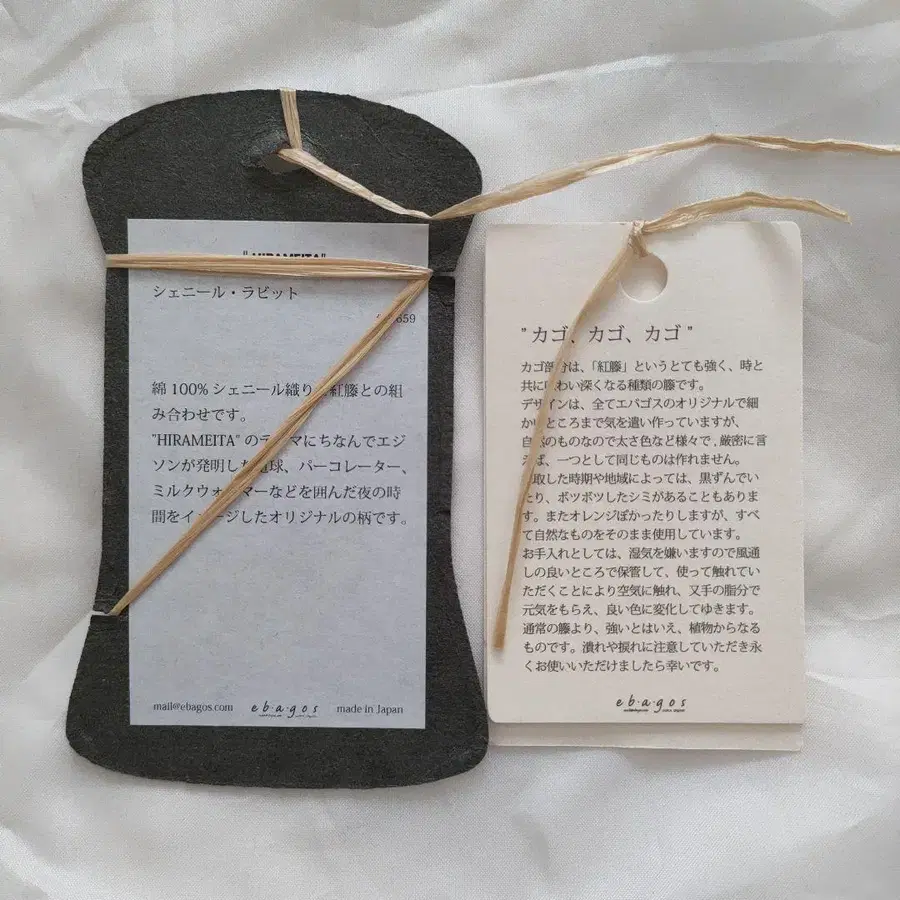 "HIRAMEITA"
シェニール・ラビット
659
綿 100% シェニール織り 紅籐との組
み合わせです。
"HIRAMEITA" の マにちなんでエジ
ソンが発明し 球、パーコレーター、
ミルクウォ マーなどを囲んだ夜の時
間をイ ージしたオリジナルの柄です。
mail@ebagos.com e・b・a・g・o・s made in Japan
" カゴ、カゴ、カゴ "
カゴ部分は、「紅籐」というとても強く、時と
共に味わい深くなる種類の籐です。
デザインは、全てエバゴスのオリジナルで細
かいところまで気を遣い作っていますが、
自然のものなので太さ色など様々で、厳密に言
えば、一つとして同じものは作れません。
取した時期や地域によっては、黒ずんでい
たり、ポツポツしたシミがあることもありま
す。またオレンジぽかったりしますが、すべ
て自然なものをそのまま使用しています。
お手入れとしては、湿気を嫌いますので風通
しの良いところで保管して、使って触れてい
ただくことにより空気に触れ、又手の脂分で
元気をもらえ、良い色に変化してゆきます。
通常の籐より、強いとはいえ、植物からなる
ものです。潰れや捩れに注意していただき永
くお使いいただけましたら幸いです。
e・b・a・g・o・s